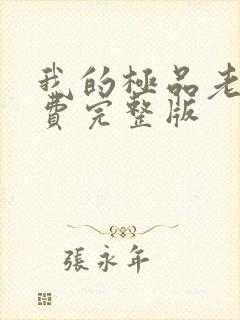 我的極品老
費完整版
張永年